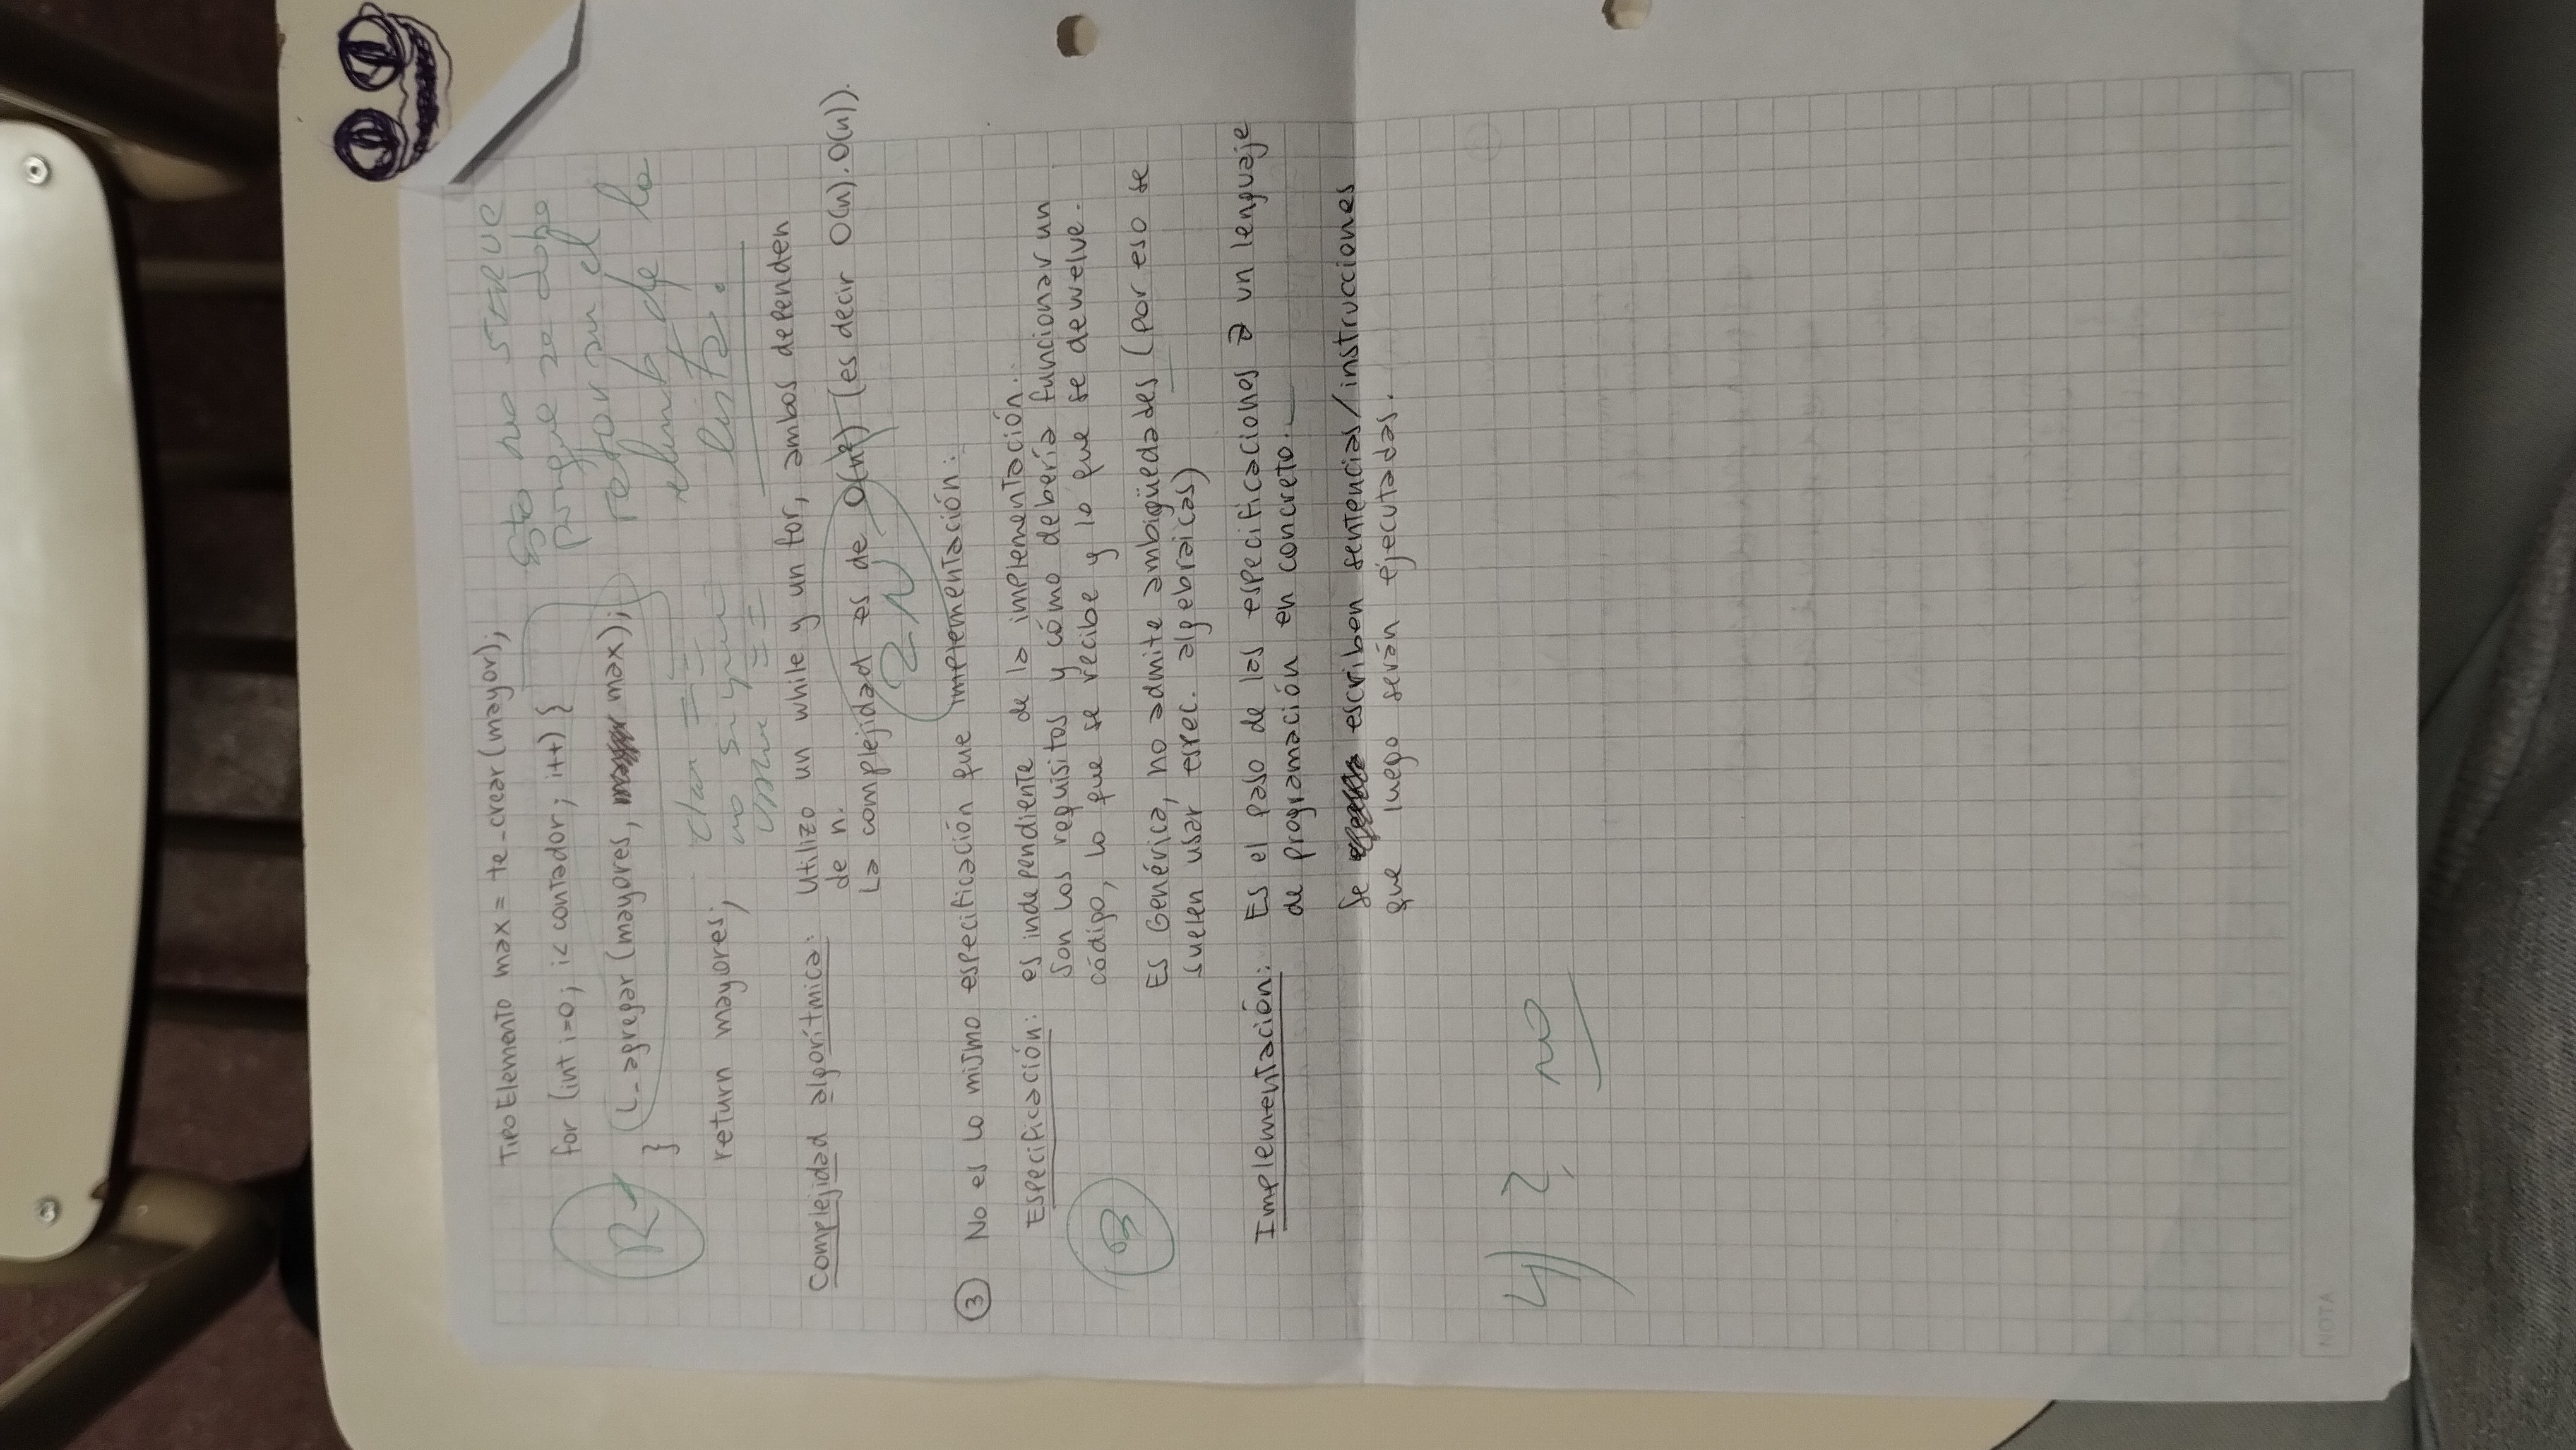 Tipo Elemento max = te_crear(mayor);
for (int i=0; i< contador; i++) {
L_agregar (mayores, max);
}
return mayores;
R-
Esto no SIRVE
porque se debe
retornar el
de la
lista.
clave ==
no sigue
==
Complejidad algorítmica: Utilizo un while y un for, ambos dependen
de n.
La complejidad es de O(n²) (es decir O(n).O(n)).
2N
③ No es lo mismo especificación que implementación:
Especificación: es independiente de la implementación.
Son los requisitos y cómo debería funcionar un
código, lo que se recibe y lo que se devuelve.
B
Es Genérica, no admite ambigüedades (por eso se
suelen usar espec. algebraicas)
Implementación: Es el paso de las especificaciones a un lenguaje
de programación en concreto.
Se escriben sentencias/instrucciones
que luego serán ejecutadas.
4) ? no
NOTA